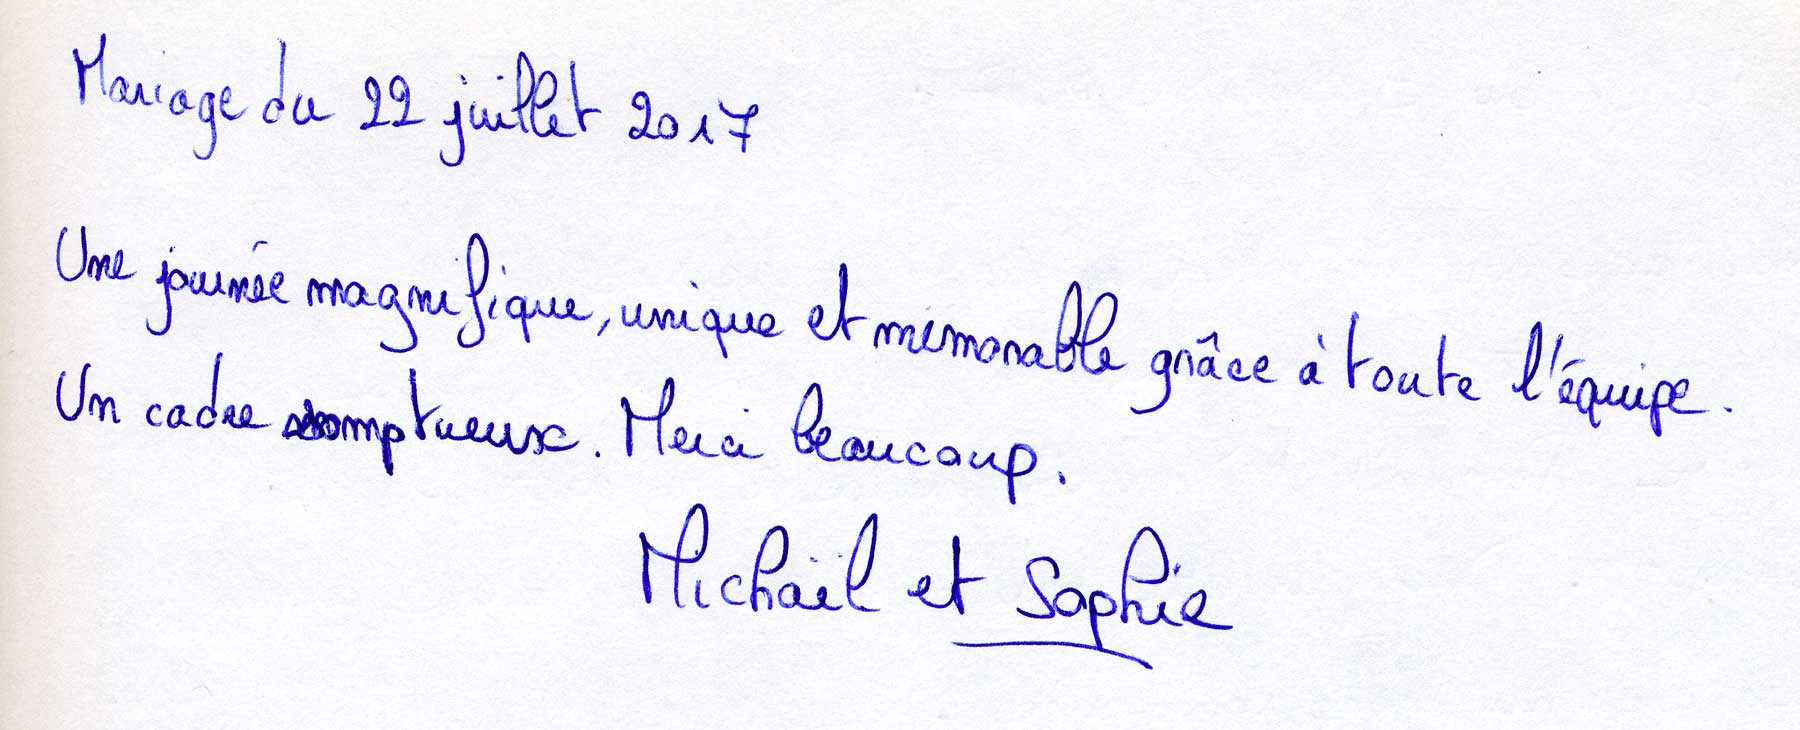 Mariage du 22 juillet 2017
Une journée magnifique, unique et memorable grâce à toute l'équipe.
Un cadre somptueux. Merci beaucoup.
Michaël et Sophie